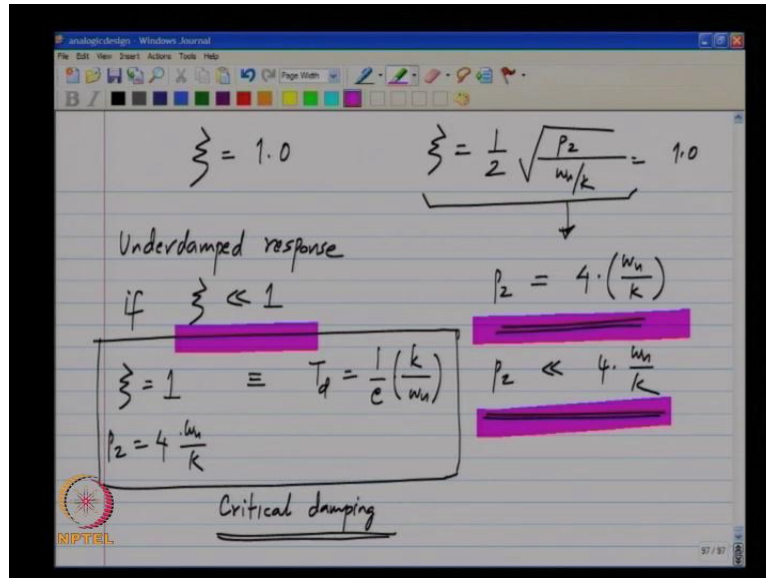 analogicdesign - Windows Journal
File Edit View Insert Actions Tools Help
Page Width
B I
ξ = 1.0
ξ = 1/2 √(p2/(ωu/k)) = 1.0
Underdamped response
if ξ ≪ 1
p2 = 4·(ωu/k)
p2 ≪ 4·ωu/k
ξ = 1 ≡ Td = 1/e (k/ωu)
p2 = 4·ωu/k
Critical damping
NPTEL
97 / 97